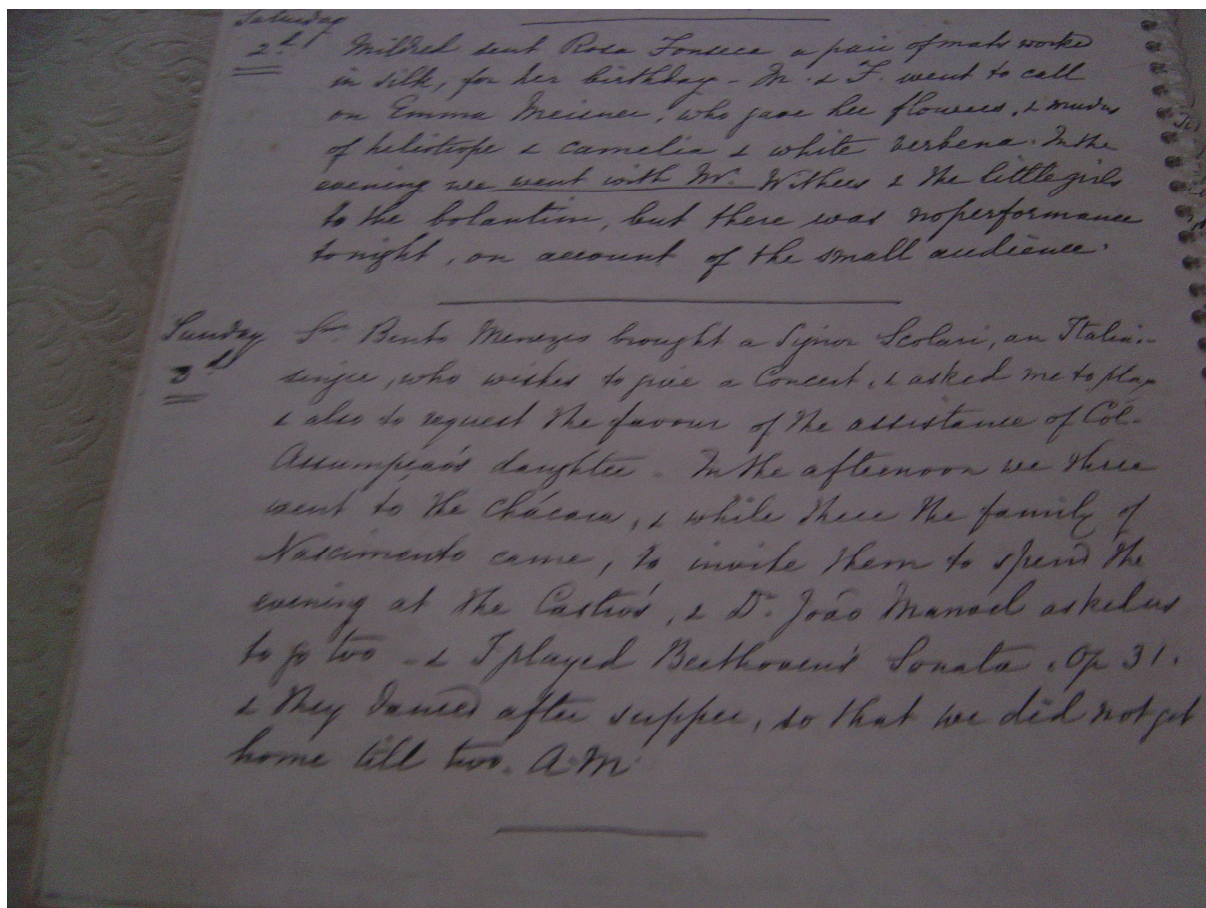 Saturday
2d Mildred sent Rosa Fonseca a pair of mats worked
in silk, for her birthday - M. & F. went to call
on Emma Meisner, who gave her flowers, & mudas
of heliotrope & camelia & white verbena. In the
evening we went with Mr. Withers & the little girls
to the bolantim, but there was no performance
tonight, on account of the small audience.
Sunday Snr Bento Menezes brought a Signor Scolari, an Italian
3d singer, who wishes to give a Concert, & asked me to play
& also to request the favour of the assistance of Col.
Assumpçao's daughter - In the afternoon we three
went to the Chácara, & while there the family of
Nascimento came, to invite them to spend the
evening at the Castro's, & Dr. João Manoel asked us
to go too - & I played Beethoven's Sonata. Op 31.
& they danced after supper, so that we did not get
home till two. A.M.